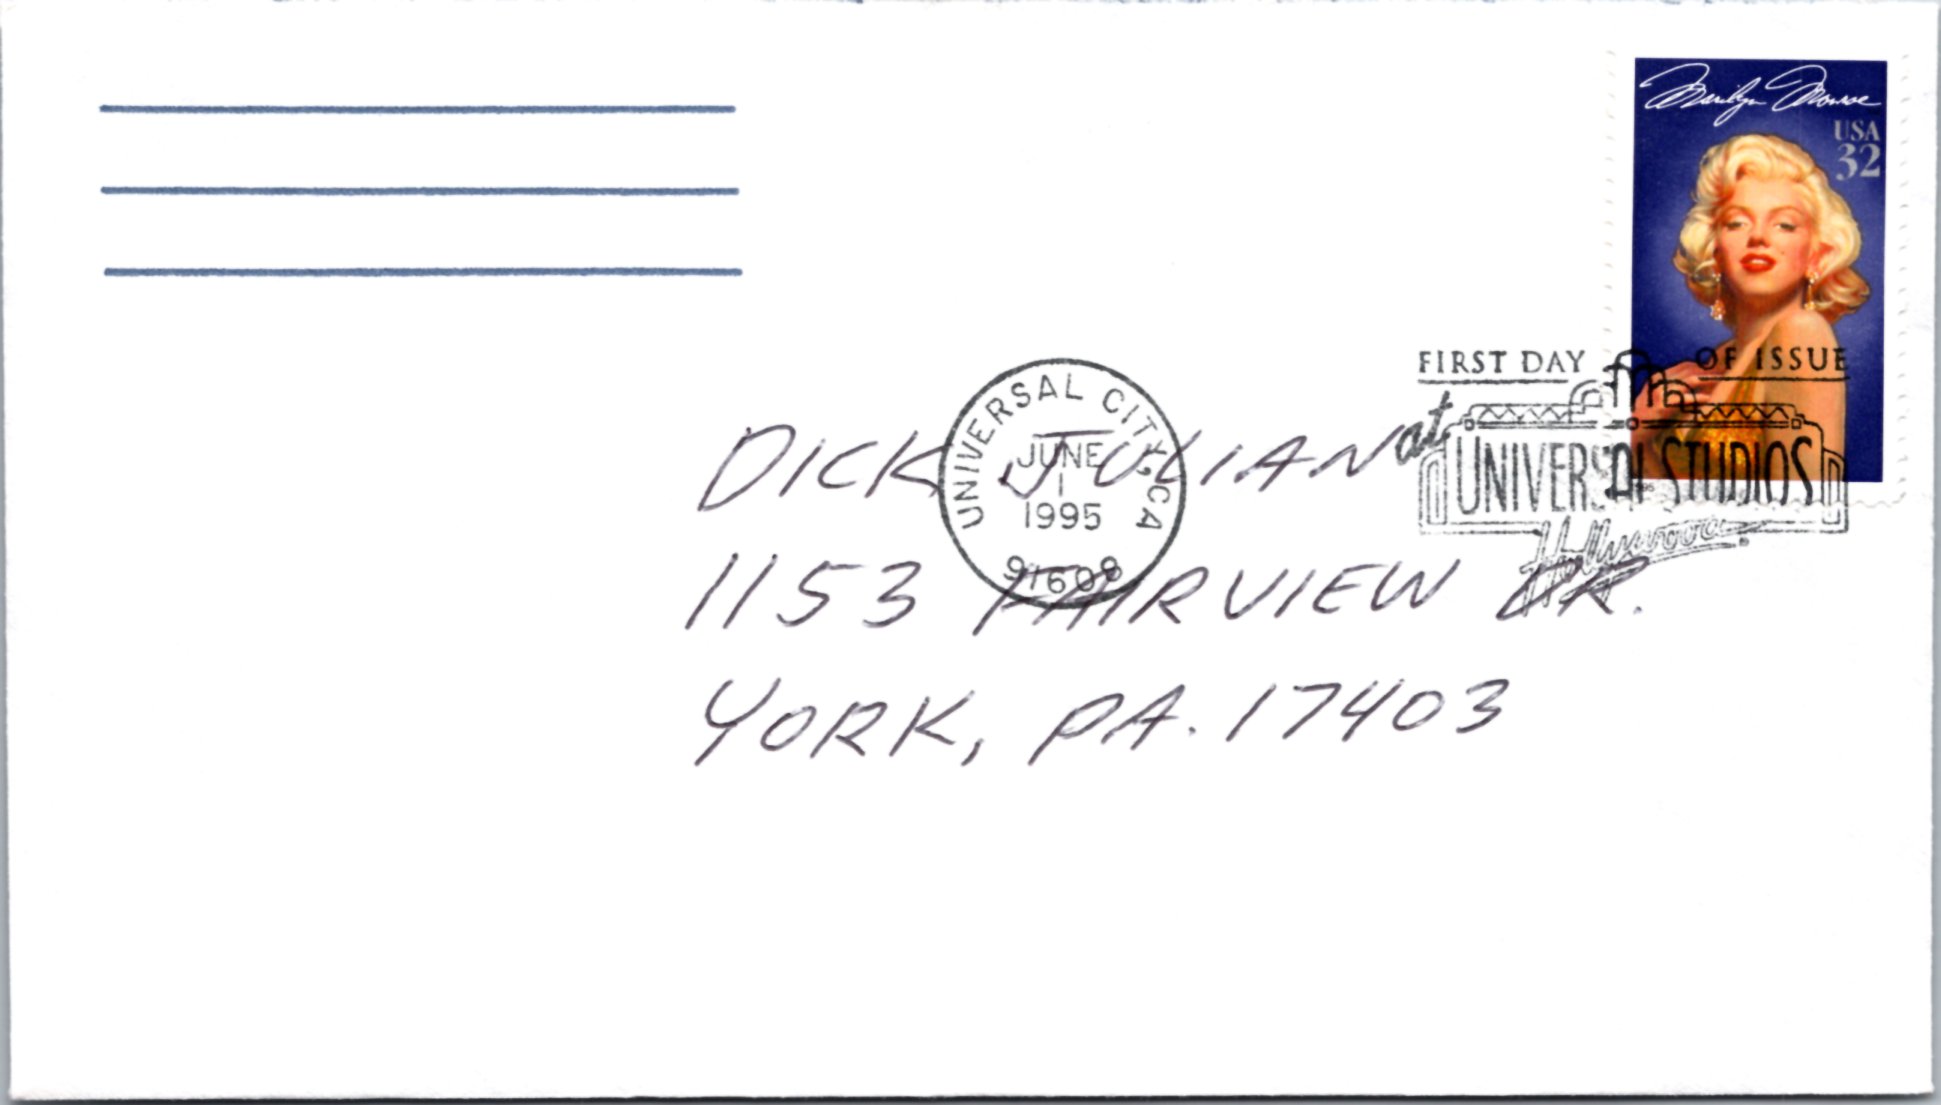 Marilyn Monroe
USA
32
FIRST DAY OF ISSUE
at
UNIVERSAL STUDIOS
Hollywood
UNIVERSAL CITY, CA
JUNE
1
1995
91608
DICK JULIAN
1153 FAIRVIEW DR.
YORK, PA. 17403